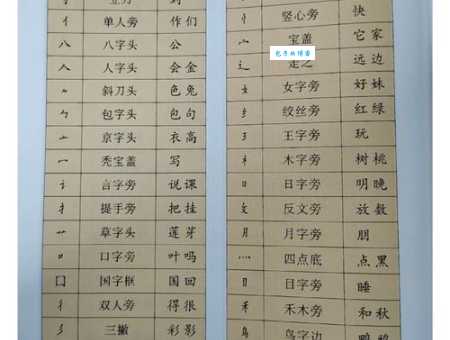 立刀 到
亻 单人旁 作们
八 八字头 公
人 人字头 会金
⺈ 斜刀头 色兔
勹 包字头 包句
亠 京字头 衣高
冖 秃宝盖 写
讠 言字旁 说课
扌 提手旁 把挂
艹 草字头 莲芽
口 口字旁 叶吗
囗 国字框 国回
彳 双人旁 得很
彡 三撇 彩影
忄 竖心旁 快
宀 宝盖 它家
辶 走之 远边
女 女字旁 好妹
纟 绞丝旁 红绿
王 王字旁 玩
木 木字旁 树桃
日 日字旁 明晚
攵 反文旁 放数
月 月字旁 朋
灬 四点底 点黑
目 日字旁 睡
禾 禾木旁 和秋
鸟字边 鸭鸦